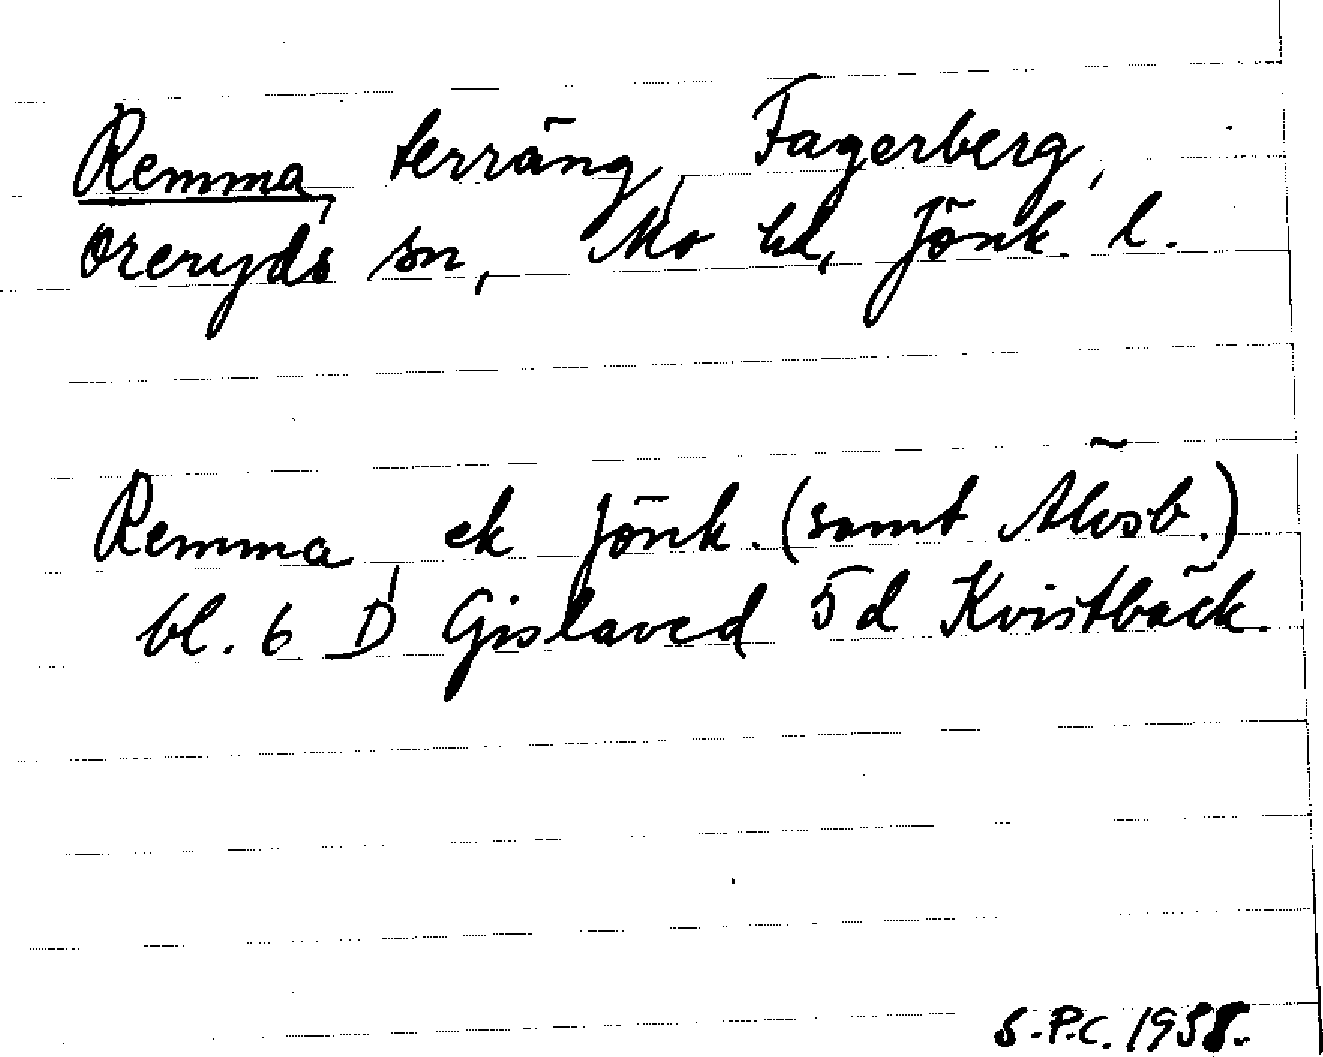 Remma, terräng, Fagerberg,
Öreryds sn, Mo hd, Jönk. l.
Remma, ek Jönk. (samt Älvsb.)
bl. 6 D Gislaved 5d Kvistbäck.
S.P.C. 1958.